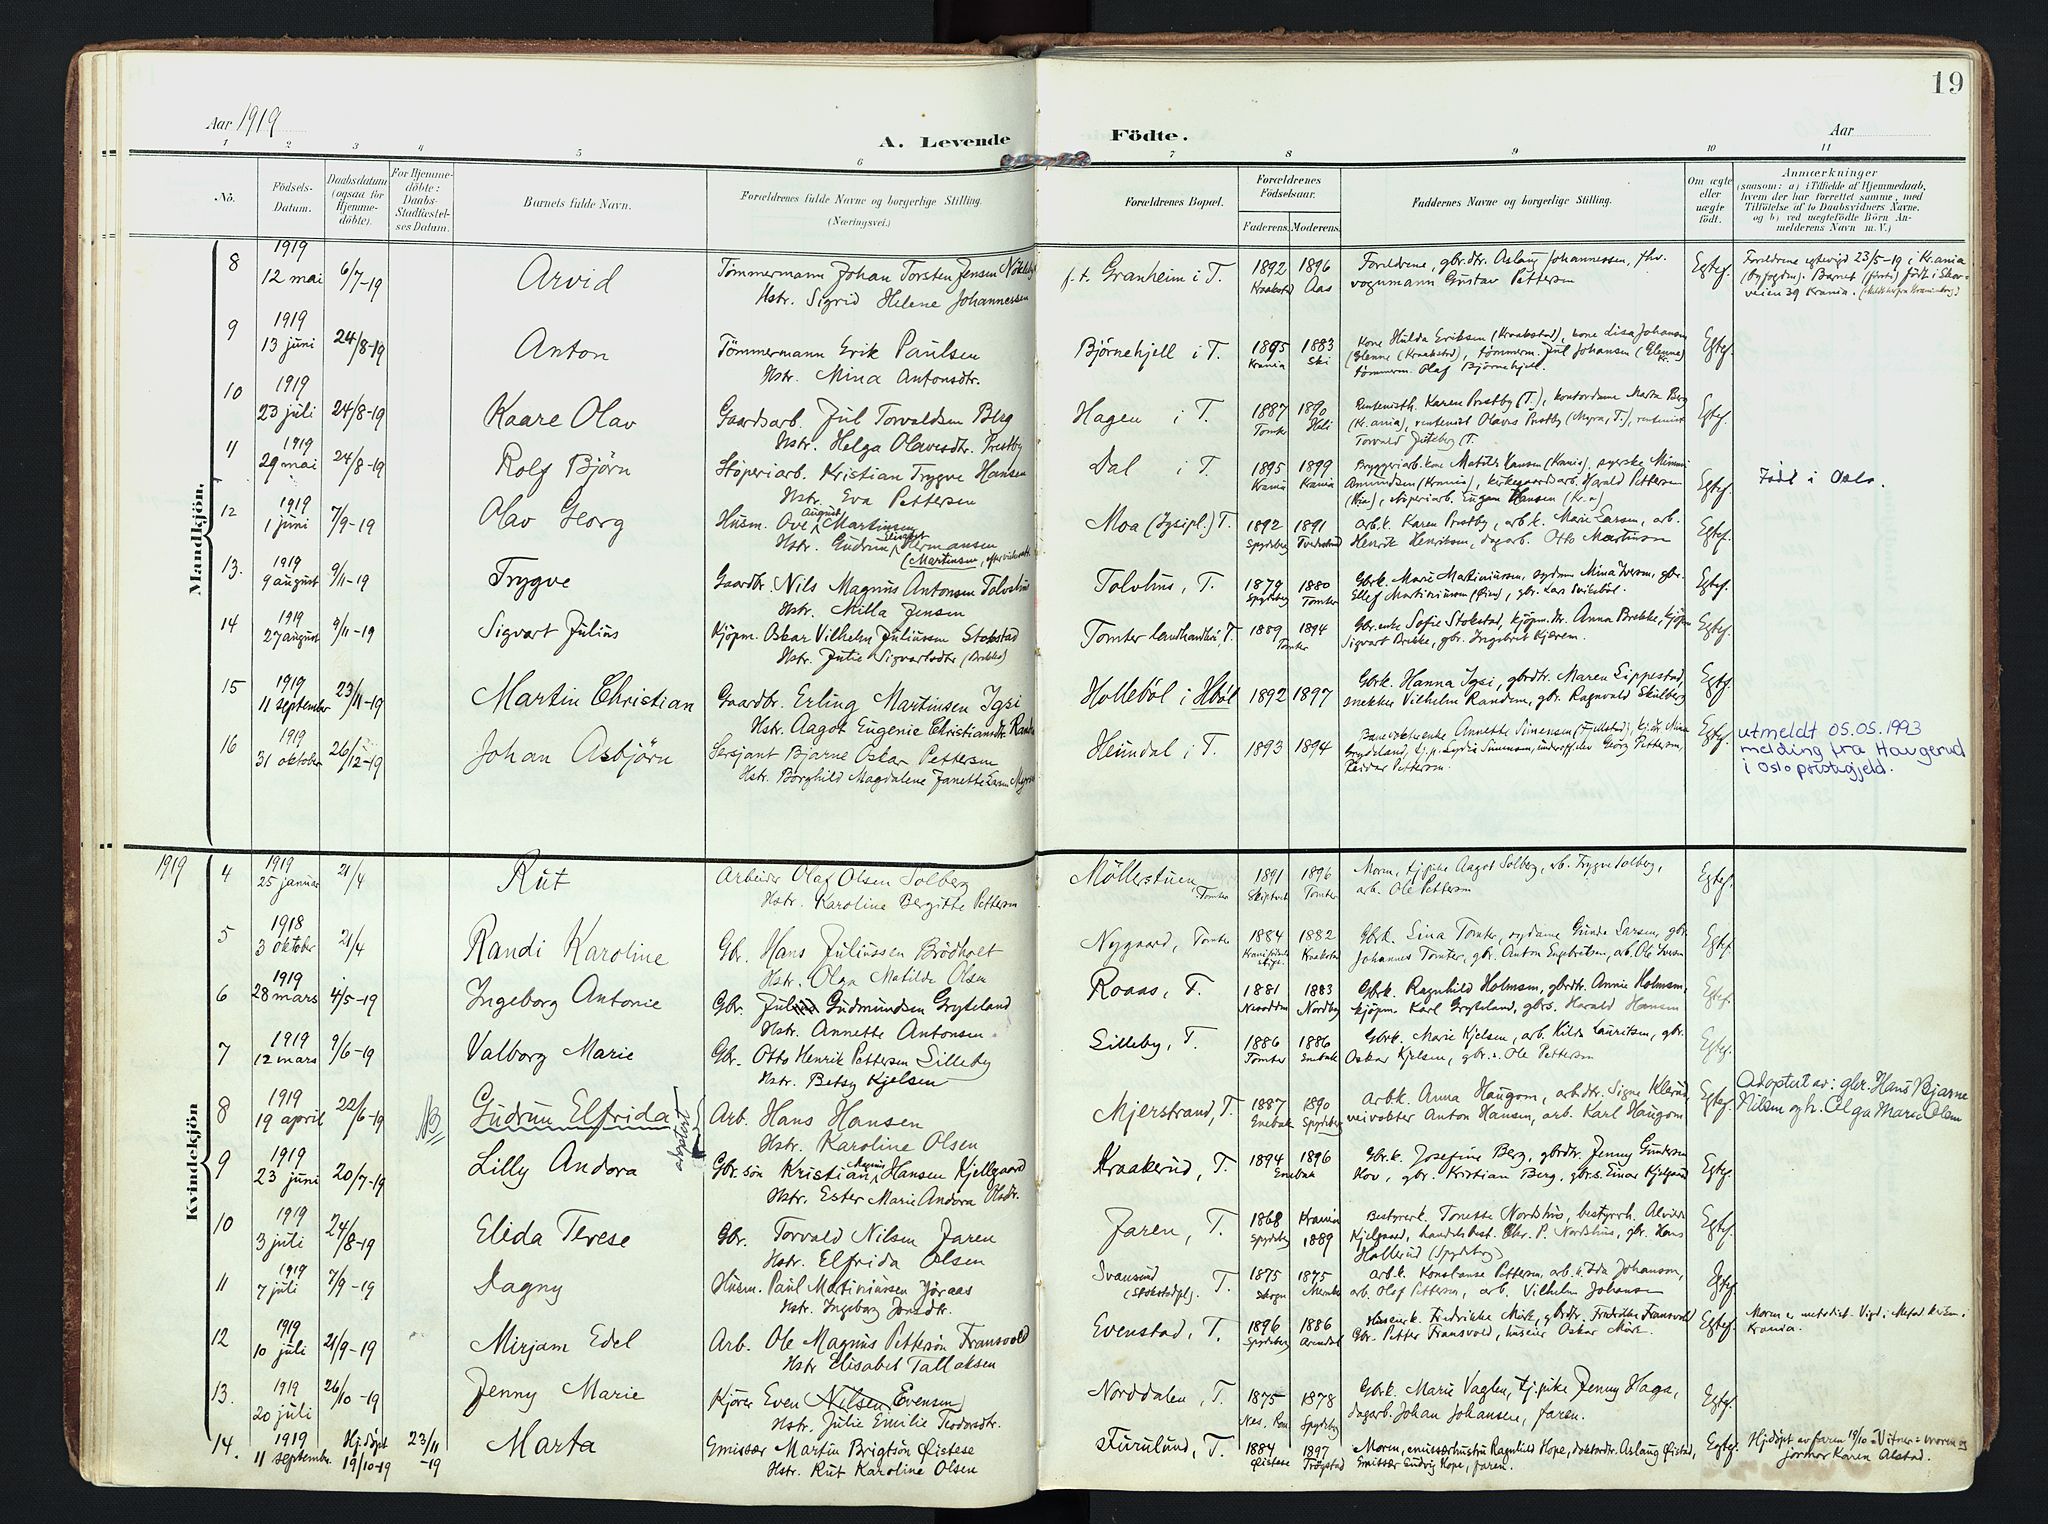 19
Aar 1919
A. Levende Födte.
Aar
1 2 3 4 5 6 7 8 9 10 11
No.
Födsels-Datum.
Daabsdatum (ogsaa for Hjemmedöbte).
For Hjemmedöbte: Daabs-Stadfæstelses Datum.
Barnets fulde Navn.
Forældrenes fulde Navne og borgerlige Stilling. (Næringsvei.)
Forældrenes Bopæl.
Forældrenes Födselsaar. Faderens. Moderens.
Faddernes Navne og borgerlige Stilling.
Om ægte eller uægte födt.
Anmærkninger
(saasom: a) i Tilfælde af Hjemmedaab, hvem der har forrettet samme, med Tilföielse af to Daabsvidners Navne, og b) ved uægtefödte Börn Anmelderens Navn m. V.)
Mandkjön.
8 1919 12 mai 6/7-19 Arvid Tömmermann Johan Torsten Jensen
Hstr. Sigrid Helene Johannessen
f.t. Granheim i T. 1892 Kraakstad 1896 Aas
Foreldrene, gbr.dtr. Aslaug Johannessen, fhv.
vognmann Gustav Pettersen
Egtef.
Foreldrene egtevigd 23/5-19 i Kr.ania
(byfogdm). Barnet födt i
veien 39 Krania.
9 1919 13 juni 24/8-19 Anton Tömmermann Erik Paulsen
Hstr. Mina Antonsdtr.
Björnehjell i T. 1895 Krania 1883 Ski
Kone Hulda Eriksen (Kraakstad), kone Lisa Johansen
Glenne (Kraakstad), tömmerm. Jul Johansen (Glenne)
tömmerm. Olaf Björnehjell.
Egtef.
10 1919 23 juli 24/8-19 Kaare Olav Gaardsarb. Jul Torvaldsen Berg
Hstr. Helga Olavesdtr. Prestby
Hagen i T. 1887 Tomter 1890
Karen Prestby (T.), kontordame Marta Berg
(Kr.ania), rentenist Olaves Prestby (Myra, T.), rentenist
Torvald
Egtef.
11 1919 29 mai 24/8-19 Rolf Björn Stöperiarb. Kristian Trygve Hansen
Hstr. Eva Pettersen
Dal i T. 1895 Krania 1899 Krania
Bryggeriarb. kone Matilde Hansen (Krania), syerske Mimmi
Amundsen (Krania), kirkegaardsarb. Harald Pettersen
(Kra), stöperiarb. Eugen Hansen (Kr.a)
Egtef.
Född i Oslo.
12 1919 1 juni 7/9-19 Olav Georg Husm. Ove August Martinsen
Hstr. Gudrun Hermansen
(Martinsen,
Moa (Igsipl.) T. 1892 Spydeberg 1891 Tvedestrand
arb.k. Karen Prestby, arb.k. Marie Larsen, arb.
Henrik Henriksen, dagarb. Otto Martinsen
Egtef.
13. 1919 9 august 9/11-19 Trygve Gaardbr. Nils Magnus Antonsen Tolvhus
Hstr. Milla Jensen
Tolvhus, T. 1879 Spydeberg 1880 Tomter
Gbrk. Marie Martiniussen, sydame Mina Iversen, gbr.
Ellef Martiniussen, gbr. Lars
Egtef.
14 1919 27 august 9/11-19 Sigvart Julius Kjöpm. Oskar Vilhelm Juliussen Stokstad
Hstr. Julie Sigvartsdtr (Brekke)
Tomter landhandleri T. 1889 1894 Tomter
Gbr. enke Sofie Stokstad, kjöpm.dtr. Anna Brekke, kjöpm
Sigvart Brekke, gbr. Ingebret Kjærem.
Egtef.
15 1919 11 september 23/11-19 Martin Christian Gaardbr. Erling Martinsen Igsi
Hstr. Aagot Eugenie Christiansdtr. Randem
Holleböl i Hböl 1892 1897
Gbrk. Hanna Igsi, gbrdtr. Maren Lippestad,
snekker Vilhelm Randem, gbr. Ragnvald Skulberg
Egtef.
16 1919 31 oktober 26/12-19 Johan Asbjörn Sersjant Bjarne Oskar Pettersen
Hstr. Borghild Magdalene Janette
Heundal i T. 1893 1894
Annette Simensen (Fjellstad),
Lydia Simensen, Georg Pettersen,
Reidar Pettersen.
Egtef.
utmeldt 05.05.1993
melding fra Haugerud
i Oslo prestegjeld.
1919
Kvindekjön
4 1919 25 januar 21/4 Rut Arbeider Olaf Olsen Solberg
Hstr. Karoline Bergitte Pettersen
Möllerstuen, Tomter 1891 Skiptvet 1896 Tomter
Morm, tj.pike Aagot Solberg, arb. Trygve Solberg,
arb. Ole Pettersen
Egtef.
5 1918 3 oktober 21/4 Randi Karoline Gbr. Hans Juliussen Brödholt
Hstr. Olga Matilde Olsen
Nygaard, Tomter 1884 1882 Kraakstad
Gbrk. Lina Tomter, sydame Gunda Larsen, gbr.
Johannes Tomter, gbr. Anton Engebretsen, arb. Ole Iversen
Egtef.
6 1919 28 mars 4/5-19 Ingeborg Antonie Gbr. Jul Gudmundsen Gryteland
Hstr. Annette Antonsen.
Roaas, T. 1881 Nesodden 1883 Nordby
Gbrk. Ragnhild Holmsen, gbrdtr. Annie Holmsen,
kjöpm. Karl Gryteland, gbrs. Harald Hansen
Egtef.
7 1919 12 mars 9/6-19 Valborg Marie Gbr. Otto Henrik Pettersen Lilleby
Hstr. Betsy Kjelsen
Lilleby, T. 1886 Tomter 1886 Enebak
Gbrk. Marie Kjelsen, arb. Hilda Lauritsen, gbr.
Oskar Kjelsen, gbr.s. Ole Pettersen
Egtef.
8 1919 19 april 22/6-19 NB Gudrun Elfrida adoptert Arb. Hans Hansen
Hstr. Karoline Olsen
Mjerstrand, T. 1887 Enebak 1890 Spydeberg
Arbk. Anna Haugom, arb.dtr. Signe Klerud,
veivokter Anton Hansen, arb. Karl Haugom
Egtef.
Adoptert av: gbr. Hans Bjarne
Nilsen og h. Olga Marie Olsen
9 1919 23 juni 20/7-19 Lilly Andora Gbr. sön Kristian Magnus Hansen Kjellgaard
Hstr. Ester Marie Andora Olsdtr.
Kraakerud, T. 1894 1896 Enebak
Gbr.k. Josefine Berg, gbrdtr. Jenny Gundersen
Hov, gbr. Kristian Berg, gbr.s. Einar Kjelgaard
Egtef.
10 1919 3 juli 24/8-19 Elida Terese Gbr. Torvald Nilsen Faren
Hstr. Elfrida Olsen
Faren, T. 1868 Spydeberg Krania 1889
Bestyrerk. Tonette Nordshus, bestyrerh. Alvilde
Kjelgaard, handelsbest. Chr. P. Nordshus, gbr. Hans
Hallerud (Spydeberg)
Egtef.
11 1919 7 juli 7/9-19 Dagny Husm. Paul Martiniussen Jöraas
Hstr. Ingeborg Jonsdtr.
Svansund (Stokstadpl.) T. 1875 1875
arb.k. Konstanse Pettersen, arb.k. Ida Johansen,
arb. Olaf Pettersen, arb. Vilhelm Johansen
Egtef.
12 1919 10 juli 21/9-19 Mirjam Edel Arb. Ole Magnus Pettersön Fransvold
Hstr Elisabet Tallaksen
Evenstad, T. 1896 Spydeberg 1886 Arendal
Huseierk. Fredrikke Mörk, gbrdtr. Fredrikke Fransvold
Gbr. Petter Fransvold, huseier Oskar Mörk.
Egtef.
Moren er metodist. Vigd i Metod.kirken i
Krania.
13. 1919 20 juli 26/10-19 Jenny Marie Kjörer Even Nilsen Evensen
Hstr. Julie Emilie Teodorsdtr.
Norddalen, T. 1875 1878 Spydeberg
Gbrk. Marie Vaglen, tj.pike Jenny Haga,
dagarb. Johan Johansen, faren.
Egtef.
14. 1919 11 september Hj.döpt 19/10-19 23/11-19 Marta Emissær Martin Brigtsön Öistese
Hstr. Rut Karoline Olsen
Furulund, T. 1884 Öistese 1897 Trögstad
Moren, emissærhustru Ragnhild Hope, doktordtr. Aslaug Öistad,
Emissær Ludvig Hope, faren.
Egtef.
Hjdöpt av faren 19/10. Vitner: moren og
jormor Karen Alstad.